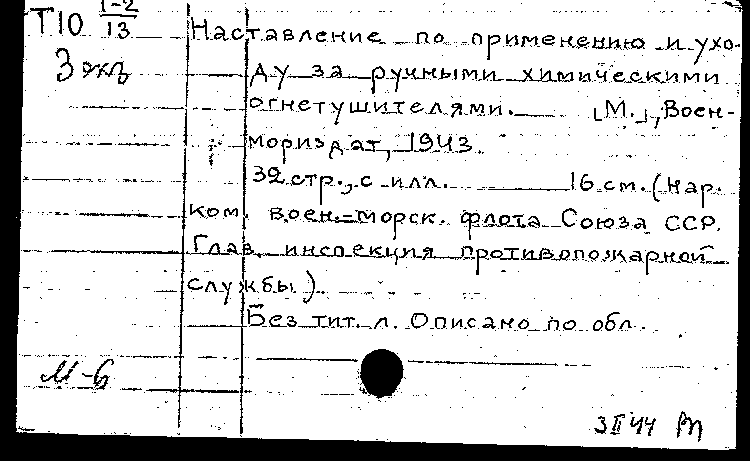 Т10 1-2/13
Наставление по применению и ухо-
3 экз
ду за ручными химическими
огнетушителями. [М.], Воен-
мориздат, 1943.
32 стр., с илл. 16 см. (Нар.
ком. воен.-морск. флота Союза ССР.
Глав. инспекция противопожарной
службы).
Без тит. л. Описано по обл.
М-б
3 II 44